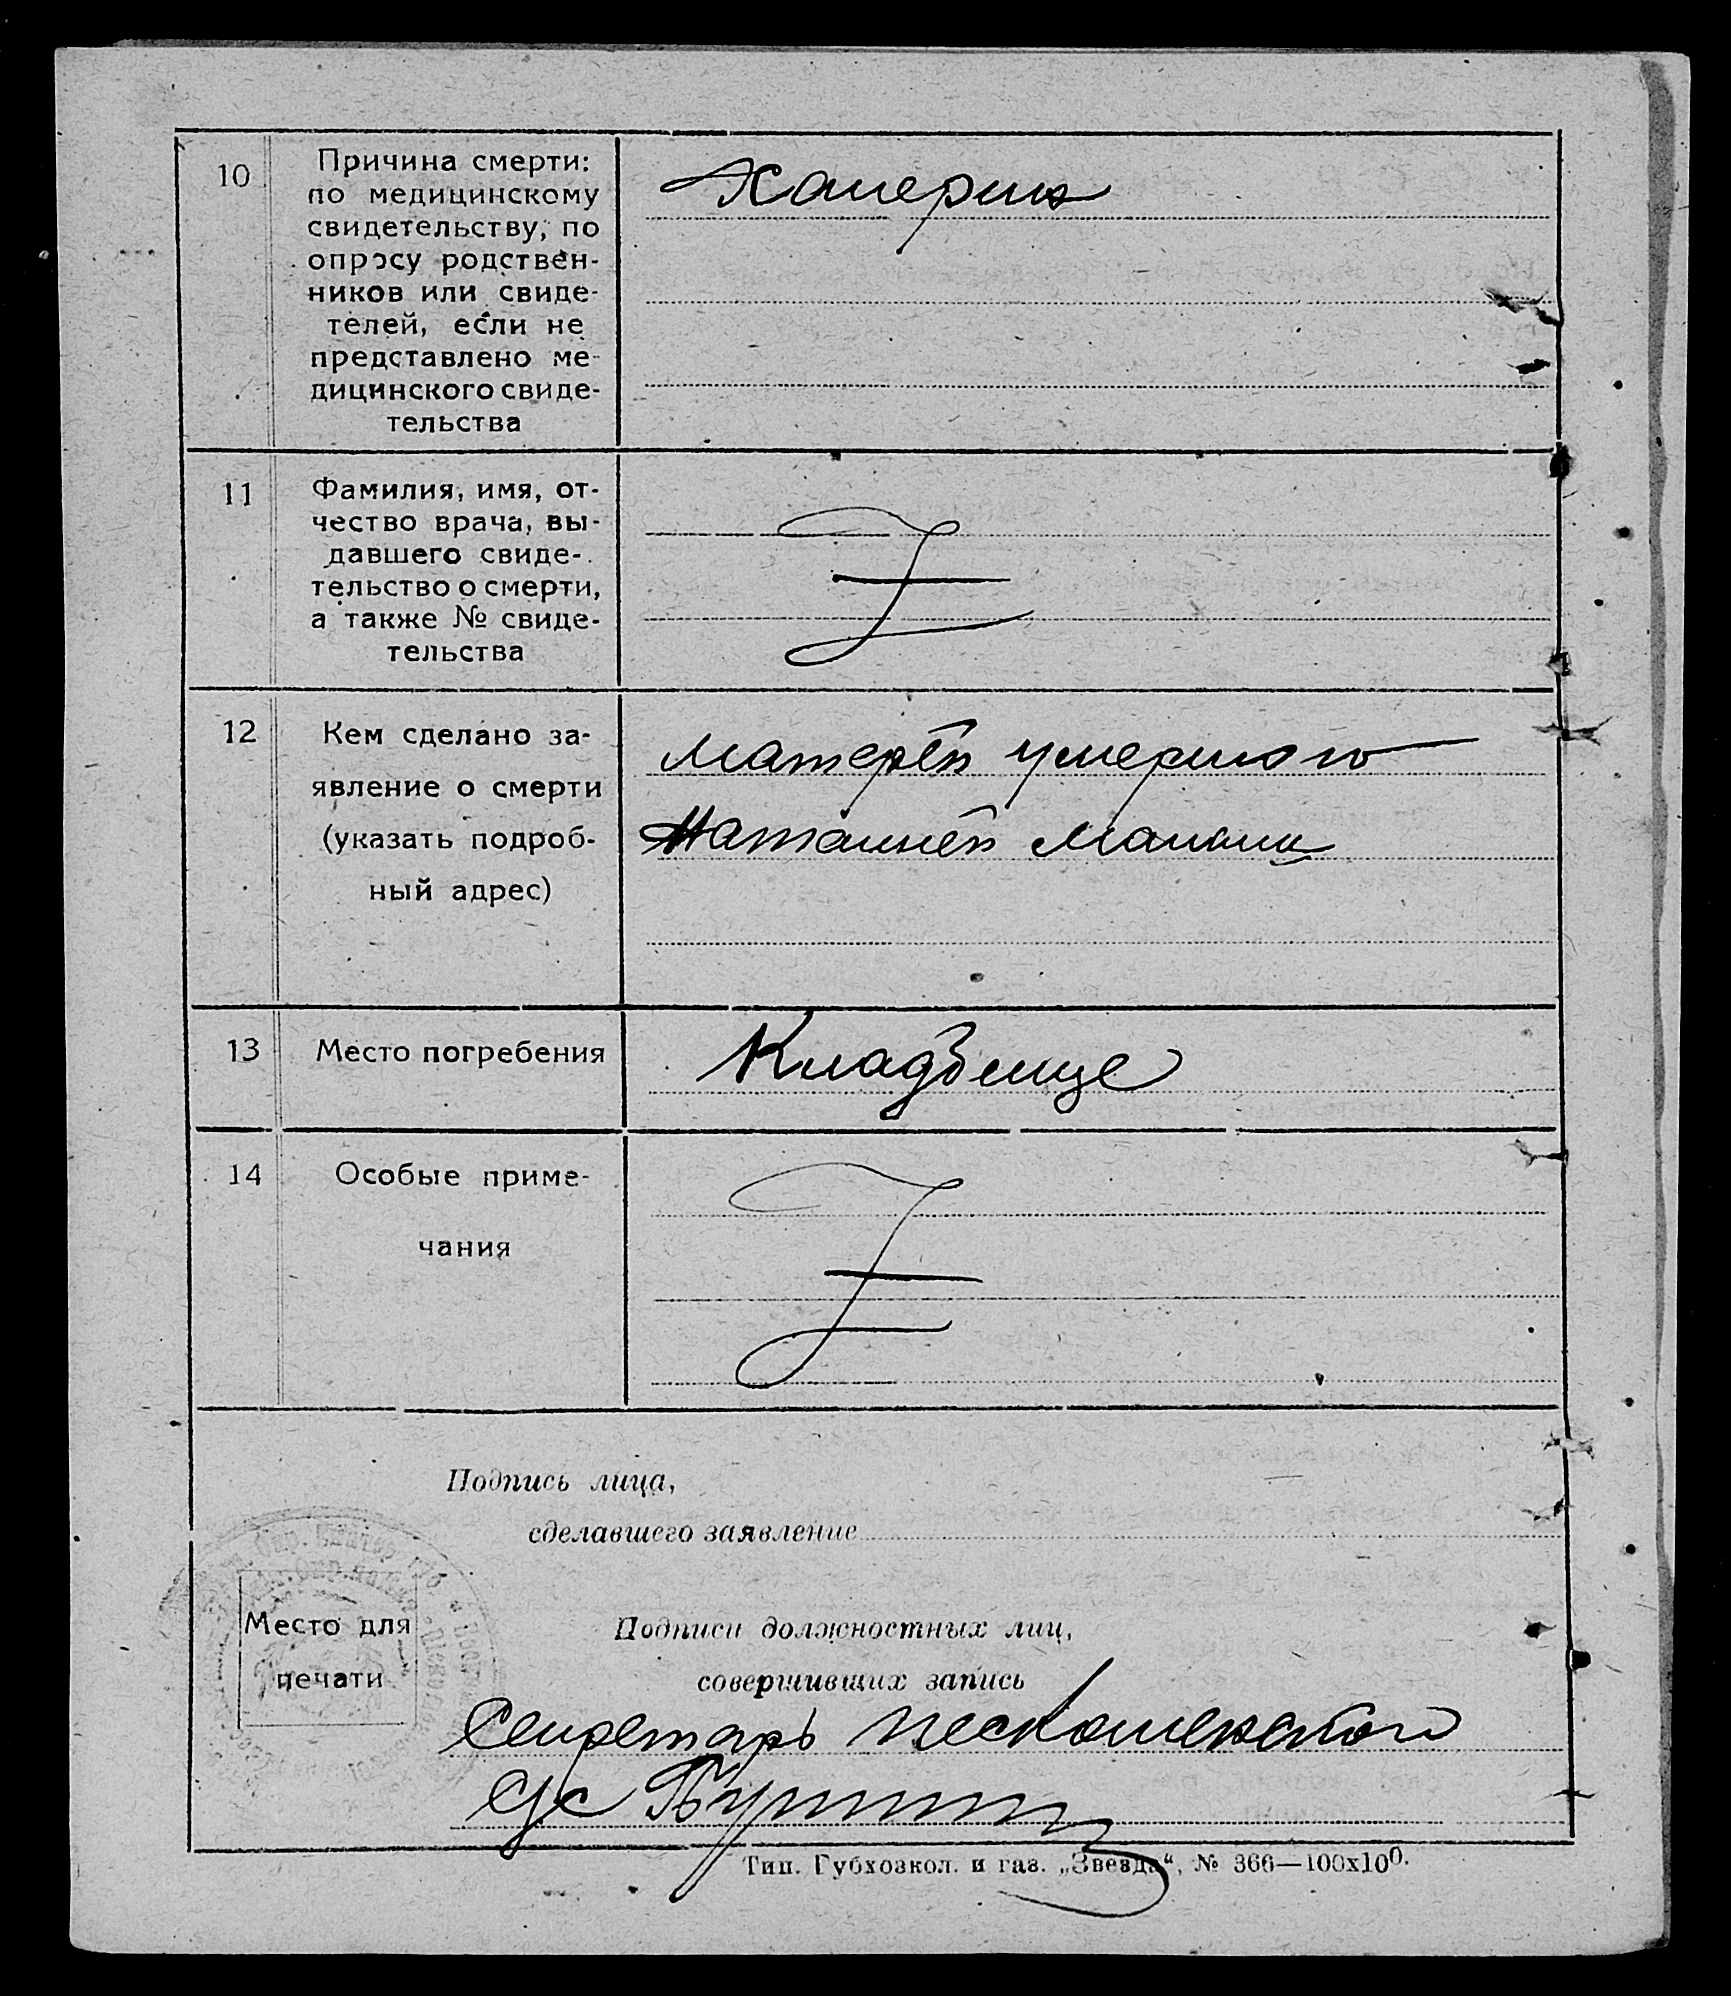 10 Причина смерти:
по медицинскому
свидетельству, по
опросу родствен-
ников или свиде-
телей, если не
представлено ме-
дицинского свиде-
тельства
11 Фамилия, имя, от-
чество врача, вы-
давшего свиде-
тельство о смерти,
а также № свиде-
тельства
12 Кем сделано за-
явление о смерти
(указать подроб-
ный адрес)
матерей умершого
13 Место погребения
Кладбище
14 Особые приме-
чания
Подпись лица,
сделавшего заявление
Место для
печати
Подписи должностных лиц,
совершивших запись
Секретарь
с/с
Тип. Губхозкол. и газ. „Звезда“, № 366—100х100.